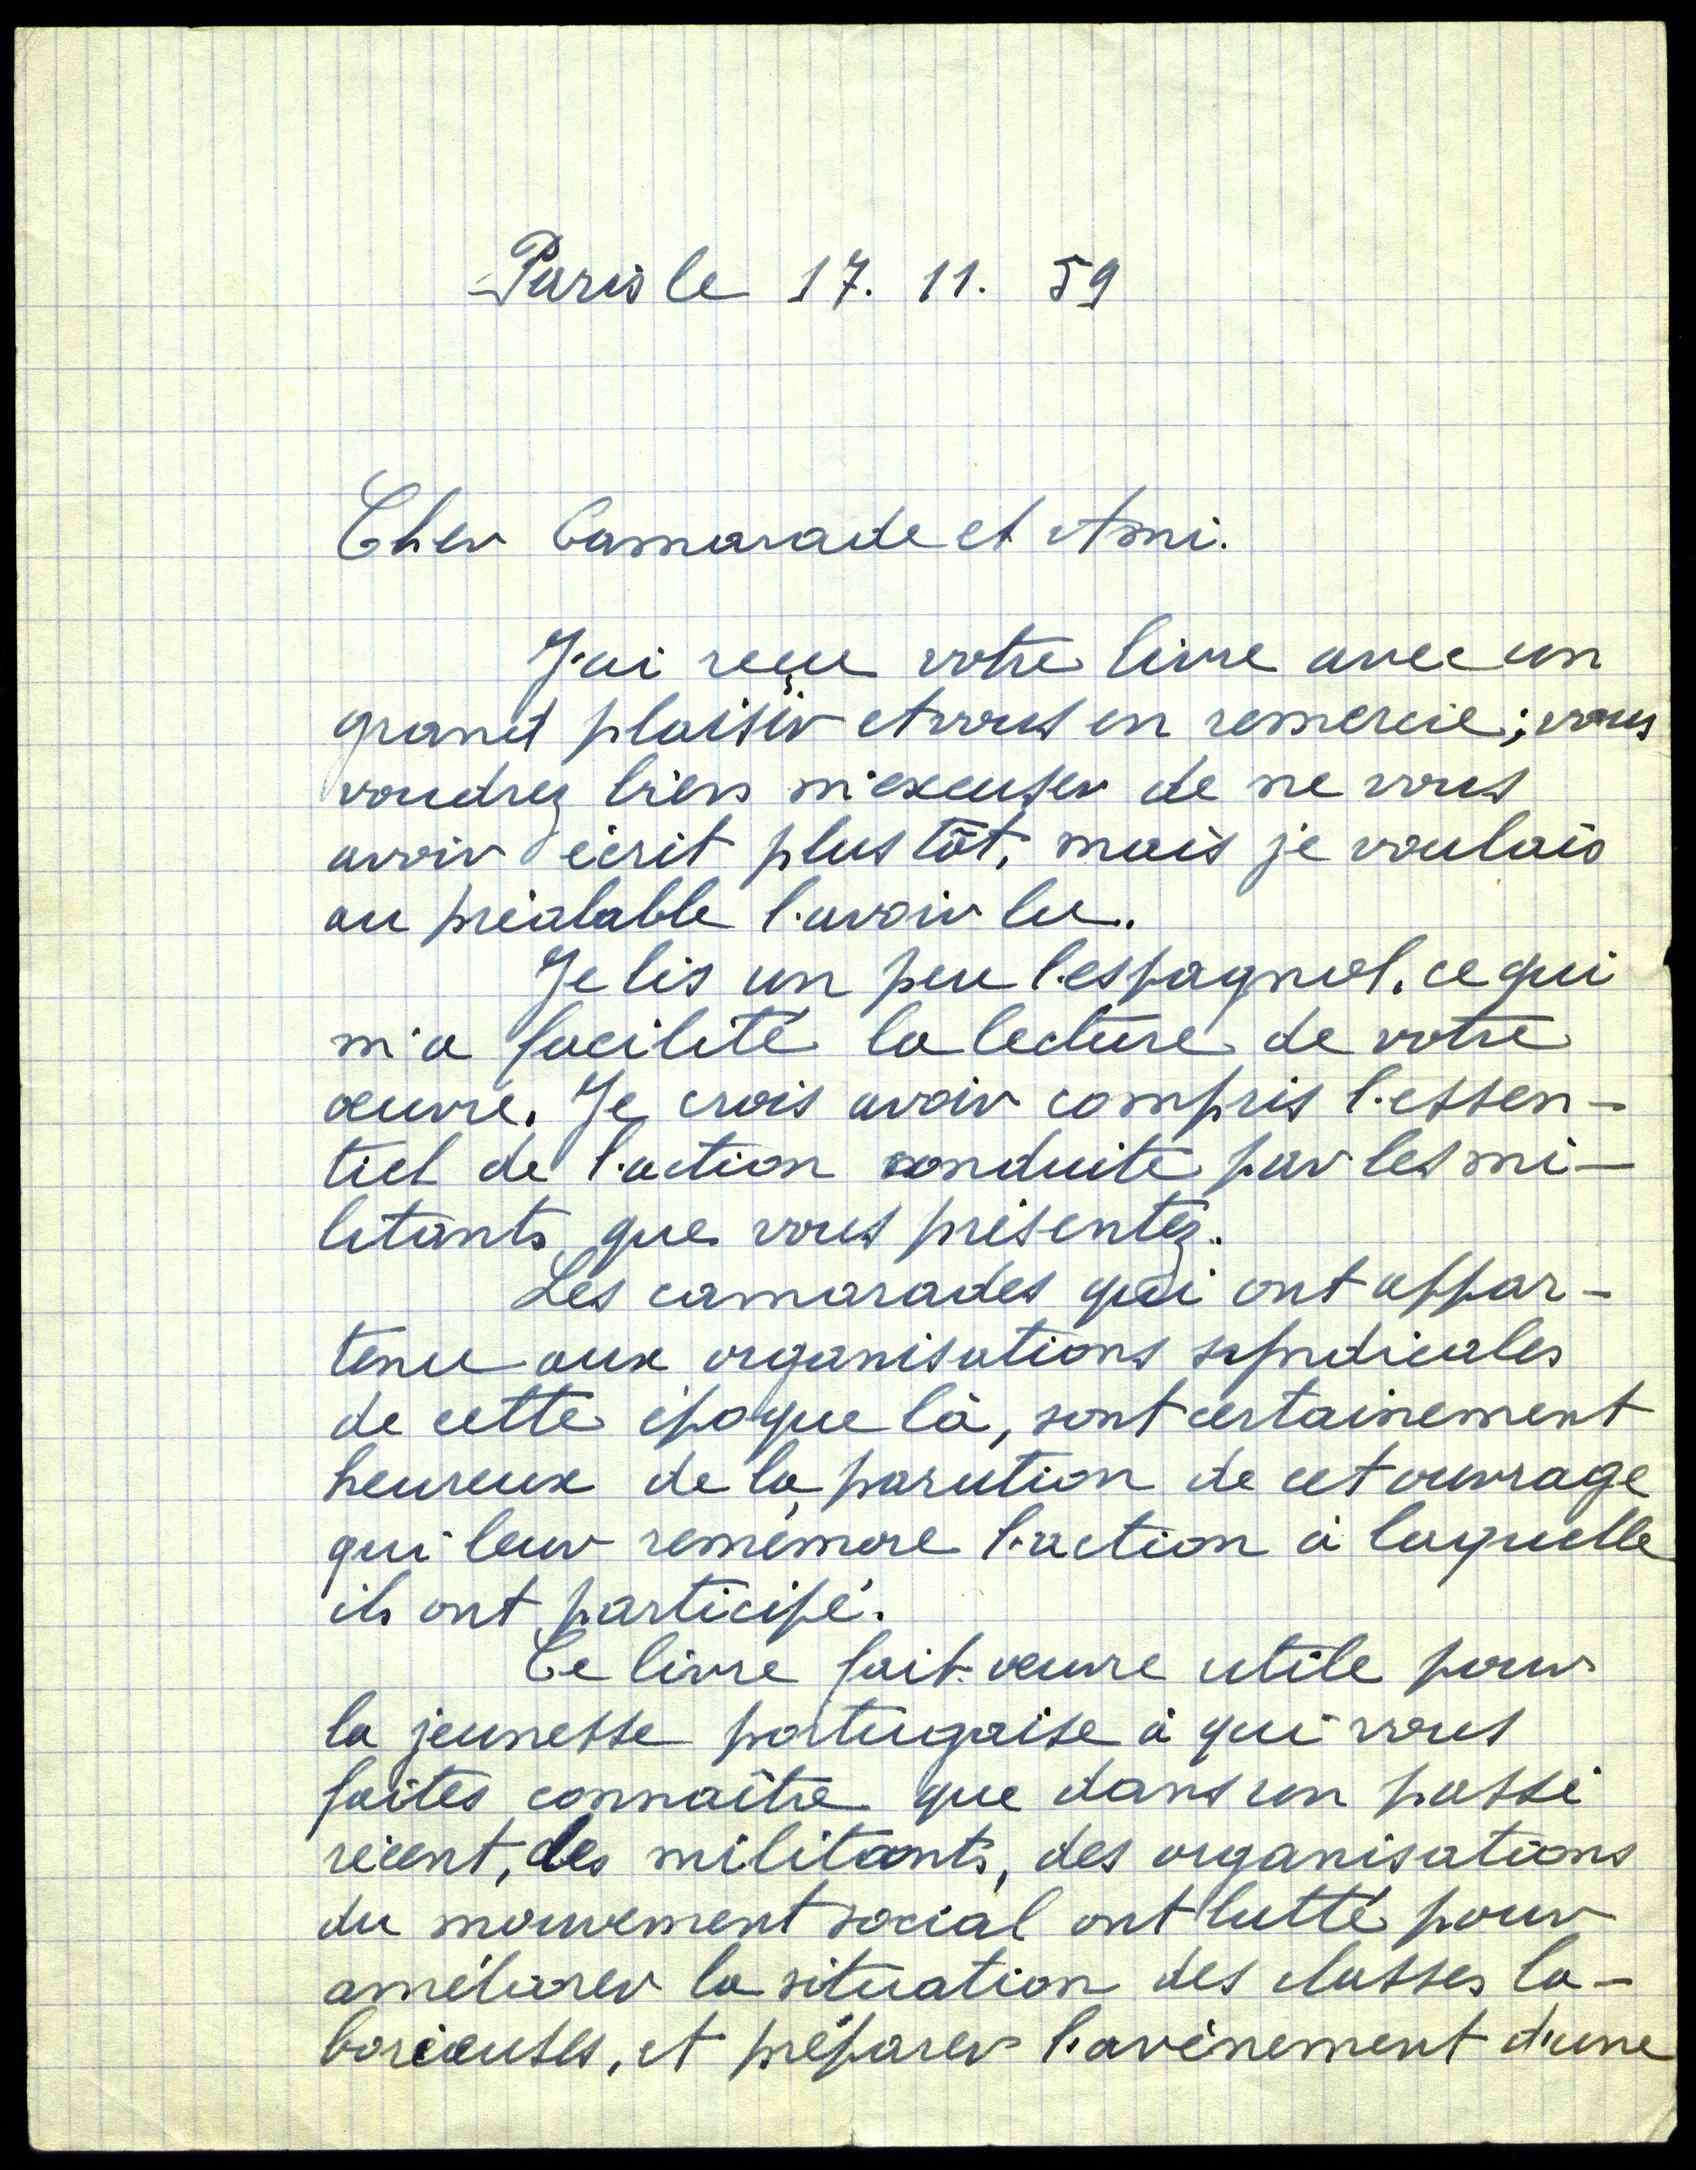 Paris le 17. 11. 59
Cher Camarade et Ami.
J'ai reçu votre livre avec un
grand plaisir et vous en remercie; vous
voudrez bien m'excuser de ne vous
avoir écrit plus tôt, mais je voulais
au préalable l'avoir lu.
Je lis un peu l'espagnol, ce qui
m'a facilité la lecture de votre
œuvre. Je crois avoir compris l'essen-
tiel de l'action conduite par les mi-
litants que vous présentez.
Les camarades qui ont appar-
tenu aux organisations syndicales
de cette époque là, sont certainement
heureux de la parution de cet ouvrage
qui leur remémore l'action à laquelle
ils ont participé.
Ce livre fait œuvre utile pour
la jeunesse portugaise à qui vous
faites connaître que dans un passé
récent, des militants, des organisations
du mouvement social ont lutté pour
améliorer la situation des classes la-
borieuses, et préparer l'avènement d'une